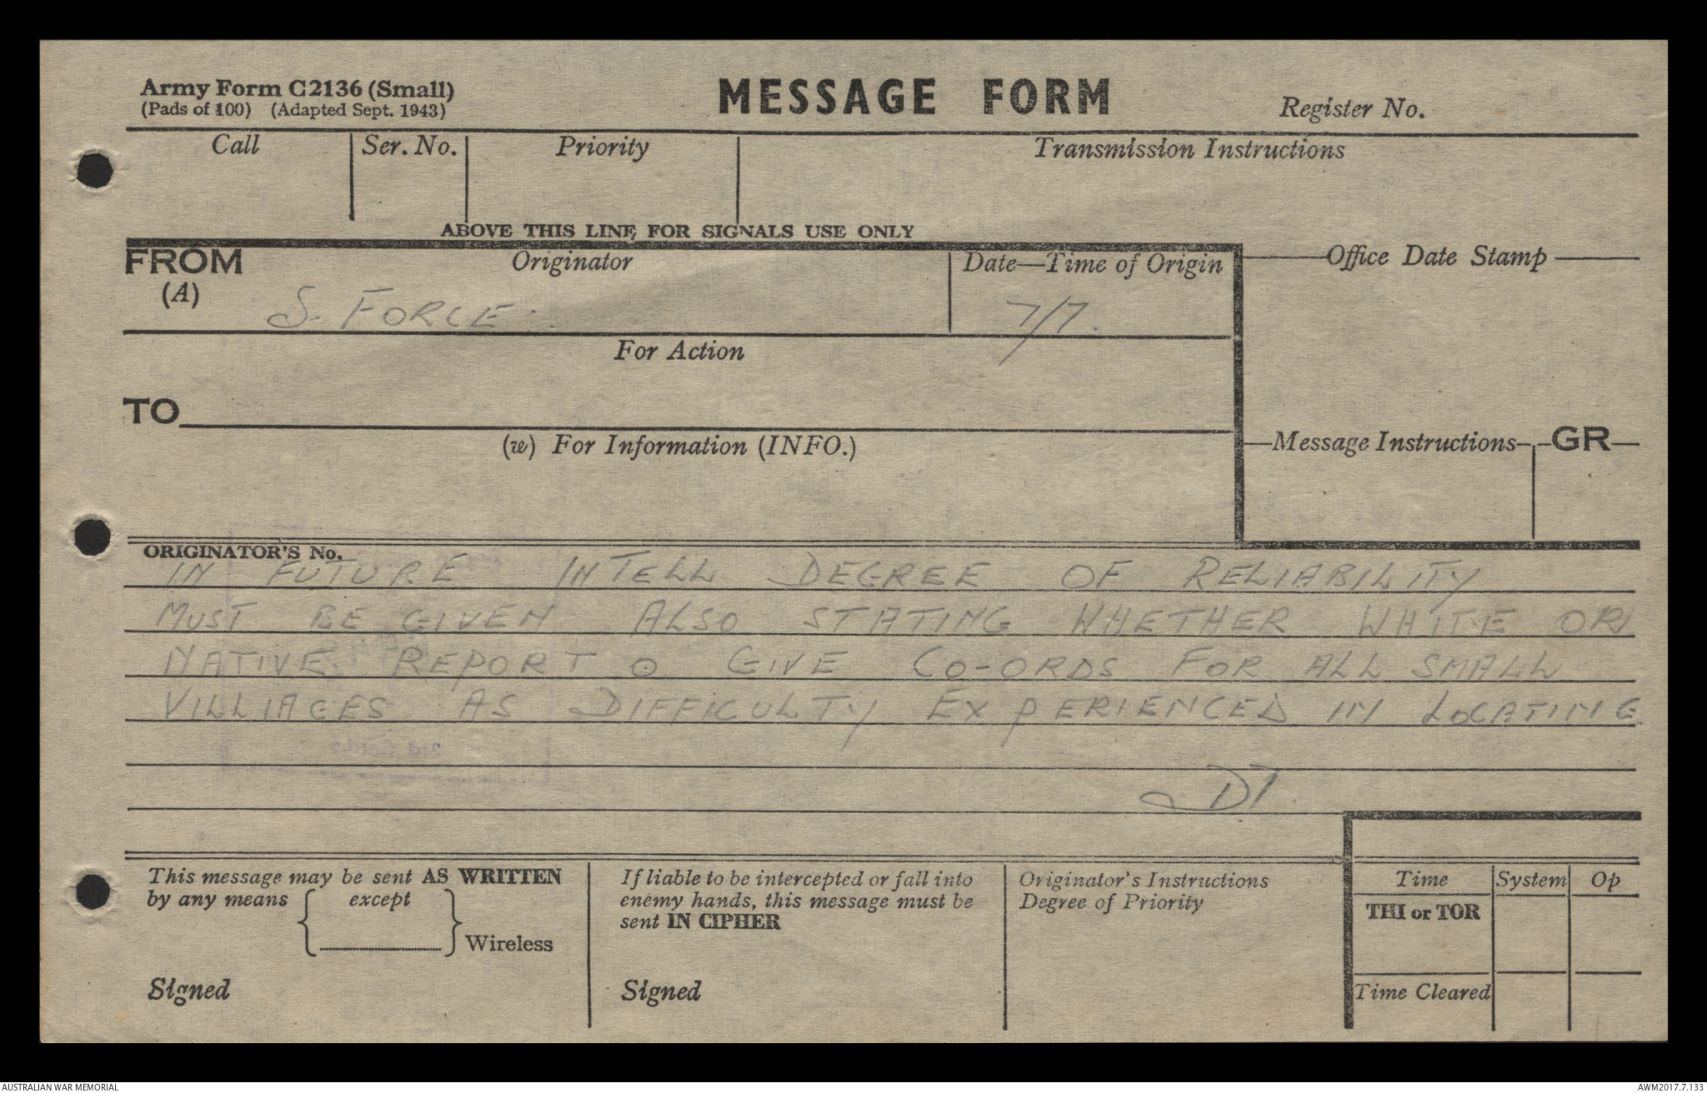 Army Form C2136 (Small)
(Pads of 100) (Adapted Sept. 1943)
MESSAGE FORM
Register No.
Call
Ser. No.
Priority
Transmission Instructions
ABOVE THIS LINE FOR SIGNALS USE ONLY
FROM
(A)
Originator
Date—Time of Origin
Office Date Stamp
S. FORCE.
7/7.
For Action
TO
(w) For Information (INFO.)
Message Instructions
GR
ORIGINATOR'S No.
IN FUTURE INTELL DEGREE OF RELIABILITY
MUST BE GIVEN ALSO STATING WHETHER WHITE OR
NATIVE REPORT O GIVE CO-ORDS FOR ALL SMALL
VILLIAGES AS DIFFICULTY EXPERIENCED IN LOCATING
This message may be sent AS WRITTEN
by any means { except } Wireless
Signed
If liable to be intercepted or fall into
enemy hands, this message must be
sent IN CIPHER
Signed
Originator's Instructions
Degree of Priority
Time
System
Op
THI or TOR
Time Cleared
AUSTRALIAN WAR MEMORIAL
AWM2017.7.133